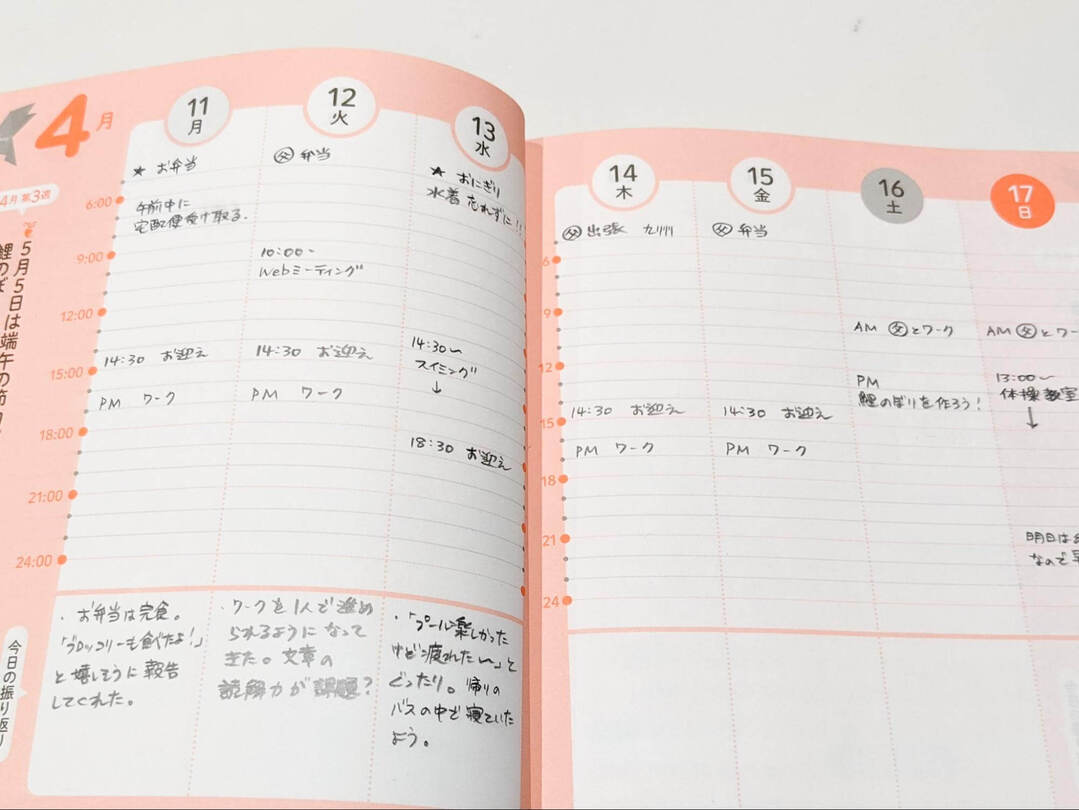 4月
4月 第3週
5月5日は端午の節
鯉のぼ
今日の振り返り
6:00
9:00
12:00
15:00
18:00
21:00
24:00
11
月
★ お弁当
午前中に
宅配便受け取る.
14:30 お迎え
PM ワーク
・お弁当は完食。
「ブロッコリーも食べたよ!」
と嬉しそうに報告
してくれた。
12
火
父 弁当
10:00〜
Webミーティング
14:30 お迎え
PM ワーク
・ワークを1人で進め
られるようになって
きた。文章の
読解力が課題?
13
水
★ おにぎり
水着 忘れずに!!
14:30〜
スイミング
↓
18:30 お迎え
・「プール楽しかった
けど疲れた〜」と
ぐったり。帰りの
バスの中で寝ていた
よう。
6
9
12
15
18
21
24
14
木
父 出張 九州
14:30 お迎え
PM ワーク
15
金
父 弁当
14:30 お迎え
PM ワーク
16
土
AM 父とワーク
PM
鯉のぼりを作ろう!
17
日
AM 父とワー
13:00〜
体操教室
↓
明日は
なので